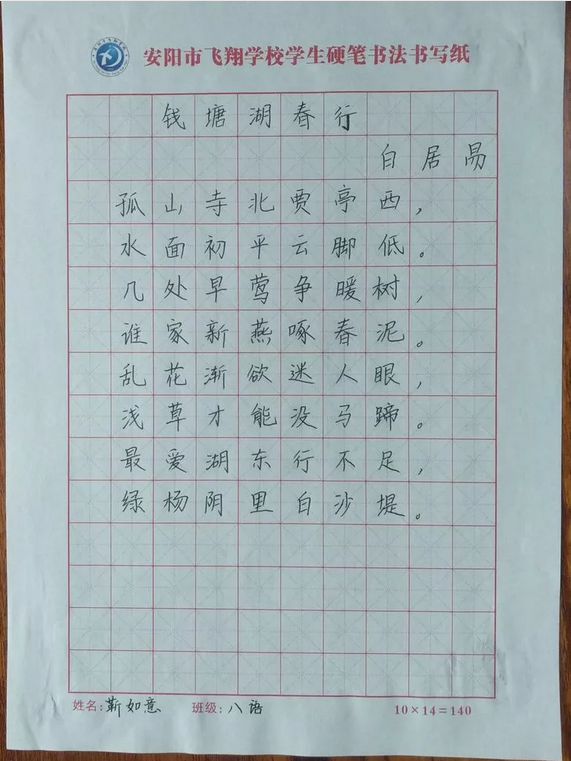 安阳市飞翔学校学生硬笔书法书写纸
钱塘湖春行
白居易
孤山寺北贾亭西，
水面初平云脚低。
几处早莺争暖树，
谁家新燕啄春泥。
乱花渐欲迷人眼，
浅草才能没马蹄。
最爱湖东行不足，
绿杨阴里白沙堤。
姓名：靳如意 班级：八语 10×14=140